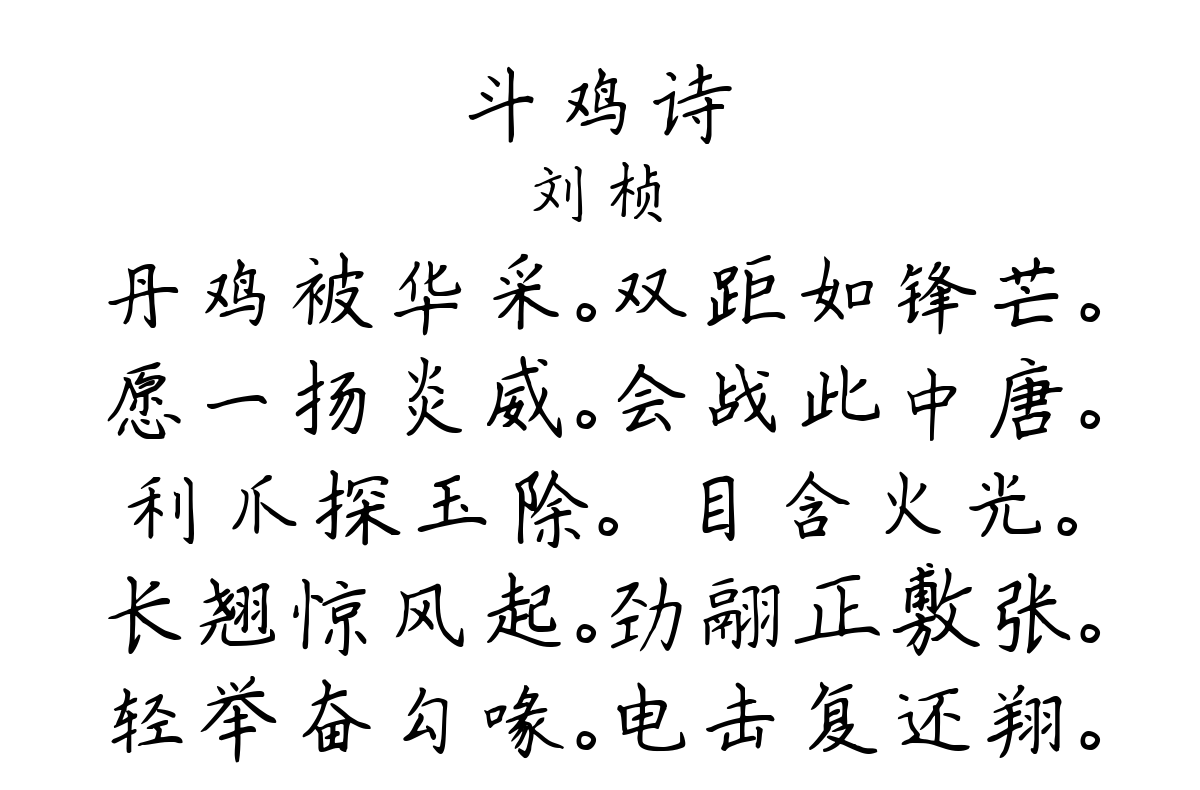 斗鸡诗
刘桢
丹鸡被华采。双距如锋芒。
愿一扬炎威。会战此中唐。
利爪探玉除。目含火光。
长翘惊风起。劲翮正敷张。
轻举奋勾喙。电击复还翔。